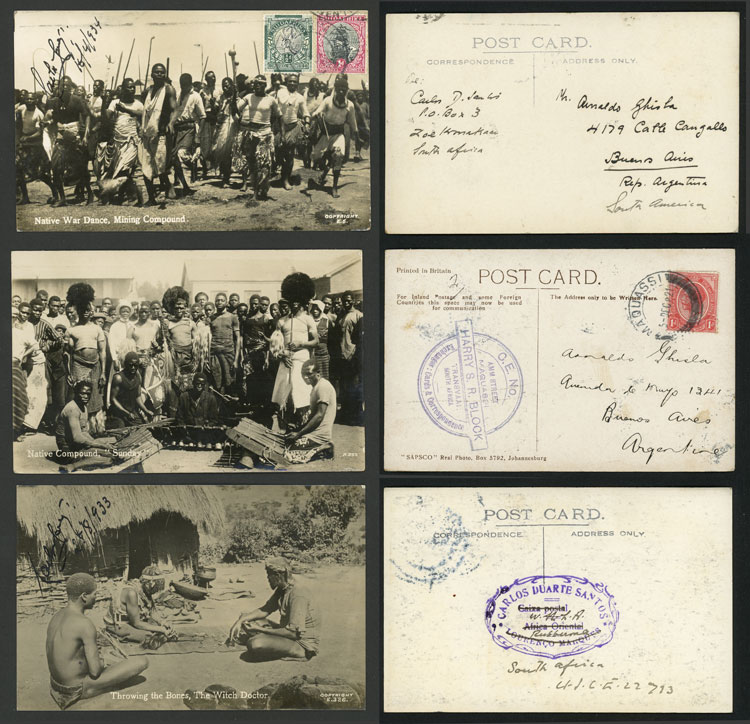 16/4/934
Native War Dance, Mining Compound.
COPYRIGHT
POST CARD.
CORRESPONDENCE
ADDRESS ONLY.
Carlos D. Santos
P.O. Box 3
South Africa
Mr. Arnaldo Ghisla
4179 Calle Cangallo
Buenos Aires
Rep. Argentina
South America
Native Compound, "Sunday"
Printed in Britain
POST CARD.
For Inland Postage and some Foreign
Countries this space may now be used
for communication
The Address only to be Written Here.
MAQUASSI
O.E. No.
HARRY S. R. BLOCK
KAMM STREET
MAQUASSI
TRANSVAAL
SOUTH AFRICA
Arnaldo Ghisla
Avenida de Mayo 1341
Buenos Aires
Argentine
"SAPSCO" Real Photo, Box 5792, Johannesburg
6/8/933
Throwing the Bones, The Witch Doctor.
COPYRIGHT
K.326.
POST CARD.
CORRESPONDENCE
ADDRESS ONLY.
CARLOS DUARTE SANTOS
Caixa postal
Africa Oriental
LOURENÇO MARQUES
South Africa